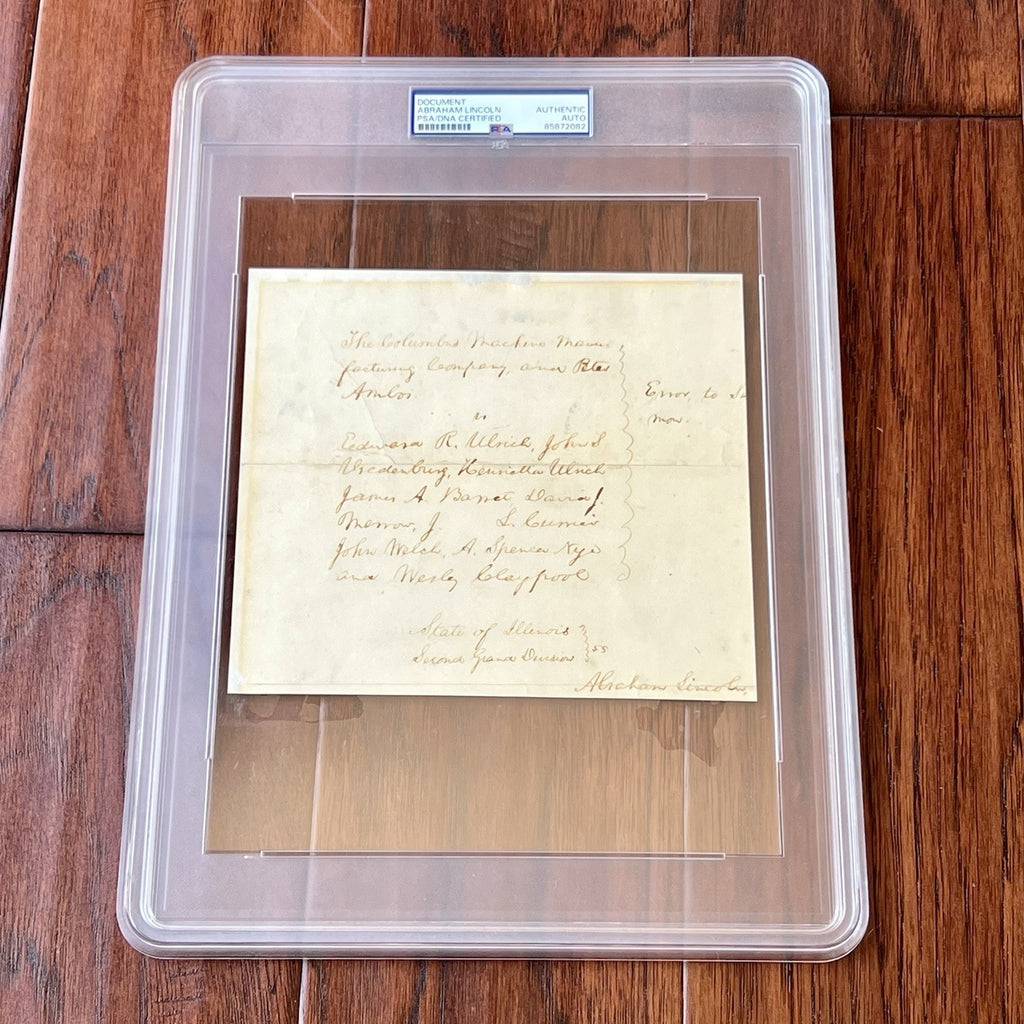 DOCUMENT
ABRAHAM LINCOLN
PSA/DNA CERTIFIED
AUTHENTIC
AUTO
85872082
PSA
The Columbus Machine Manu
facturing Company, and Peter
Ambos
vs
Edward R. Ulrich, John S
Vredenburg, Henrietta Ulrich
James A. Barret David J.
Merrow, J. L. Currier
John Welch, A. Spencer Nye
and Wesley Claypool
Error, to
mon.
State of Illinois
Second Grand Division
SS
Abraham Lincoln,